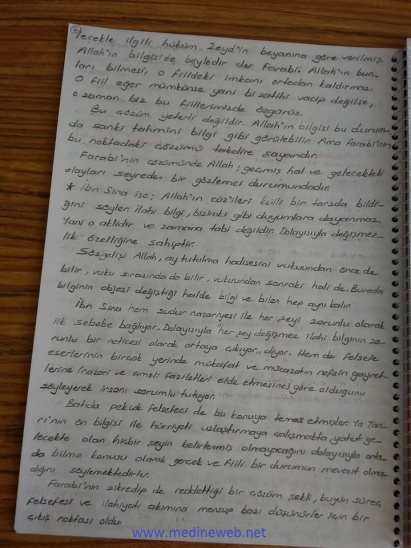 5
lecekle ilgili hüküm, Zeyd'in beyanına göre verilmiş.
Allah'ın bilgisi de böyledir der Farabi. Allah'ın bun-
ları bilmesi, o fiildeki imkanı ortadan kaldırmaz.
O fiil eğer mümkünse yani bizatihi vacip değilse,
o zaman biz bu fiillerimizde özgürüz.
Bu çözüm yeterli değildir. Allah'ın bilgisi bu durum-
da sanki tahmini bilgi gibi görülebilir. Ama Farabi'nin
bu noktadaki çözümü takdire şayandır.
Farabi'nin çözümünde Allah; geçmiş hal ve gelecekteki
olayları seyreden bir gözlemci durumundadır.
* İbn Sina ise; Allah'ın cüz'ileri külli bir tarzda bildi-
ğini söyler. İlahi bilgi, bizimki gibi duyumlara dayanmaz
Yani o aklidir ve zamana tabi değildir. Dolayısıyla değişmez-
lik özelliğine sahiptir.
Sözgelişi Allah, ay tutulma hadisesini vukuundan önce de
bilir, vuku sırasında da bilir, vukuundan sonraki hali de. Burada
bilginin objesi değiştiği halde bilgi ve bilen hep aynı kalır.
İbn Sina hem sudur nazariyesi ile her şeyi zorunlu olarak
ilk sebebe bağlıyor. Dolayısıyla "her şey değişmez ilahi bilginin zo-
runlu bir neticesi olarak ortaya çıkıyor" diyor. Hem de felsefe
eserlerinin birçok yerinde mükafat ve mücazatın nefsin gayret-
lerine (nazari ve ameli faziletleri elde etmesine) göre olduğunu
söyleyerek insanı sorumlu tutuyor.
Batıda pekçok felsefeci de bu konuya temas etmişler. Ya Tan-
rı'nın ön bilgisi ile hürriyeti uzlaştırmaya çalışmakta, yahut ge-
lecekte olan hiçbir şeyin belirlenmiş olmayacağını dolayısıyla orta-
da bilme konusu olarak gerçek ve fiili bir durumun mevcut olma-
dığını söylemektedirler.
Farabi'nin zikredip de reddettiği bir çözüm şekli, bugün süreç
felsefesi ve ilahiyatı akımına mensup bazı düşünürler için bir
çıkış noktası oldu.
www.medineweb.net